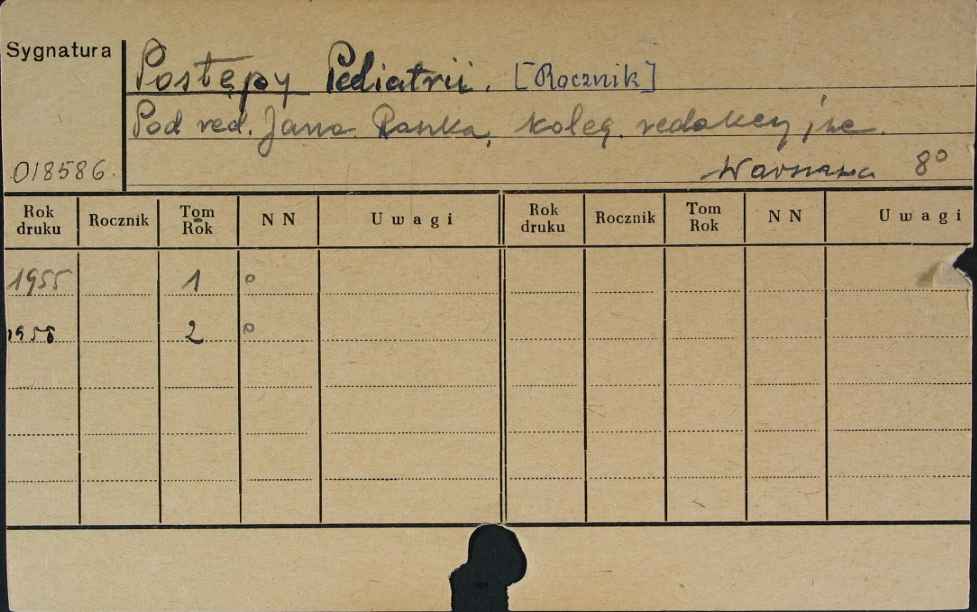 Sygnatura
Postępy Pediatrii. [Rocznik]
Pod red. Jana Raszka, koleg. redakcyjne.
018586.
Warszawa 8°
Rok druku Rocznik Tom Rok NN Uwagi Rok druku Rocznik Tom Rok NN Uwagi
1955 1 °
1956 2 °